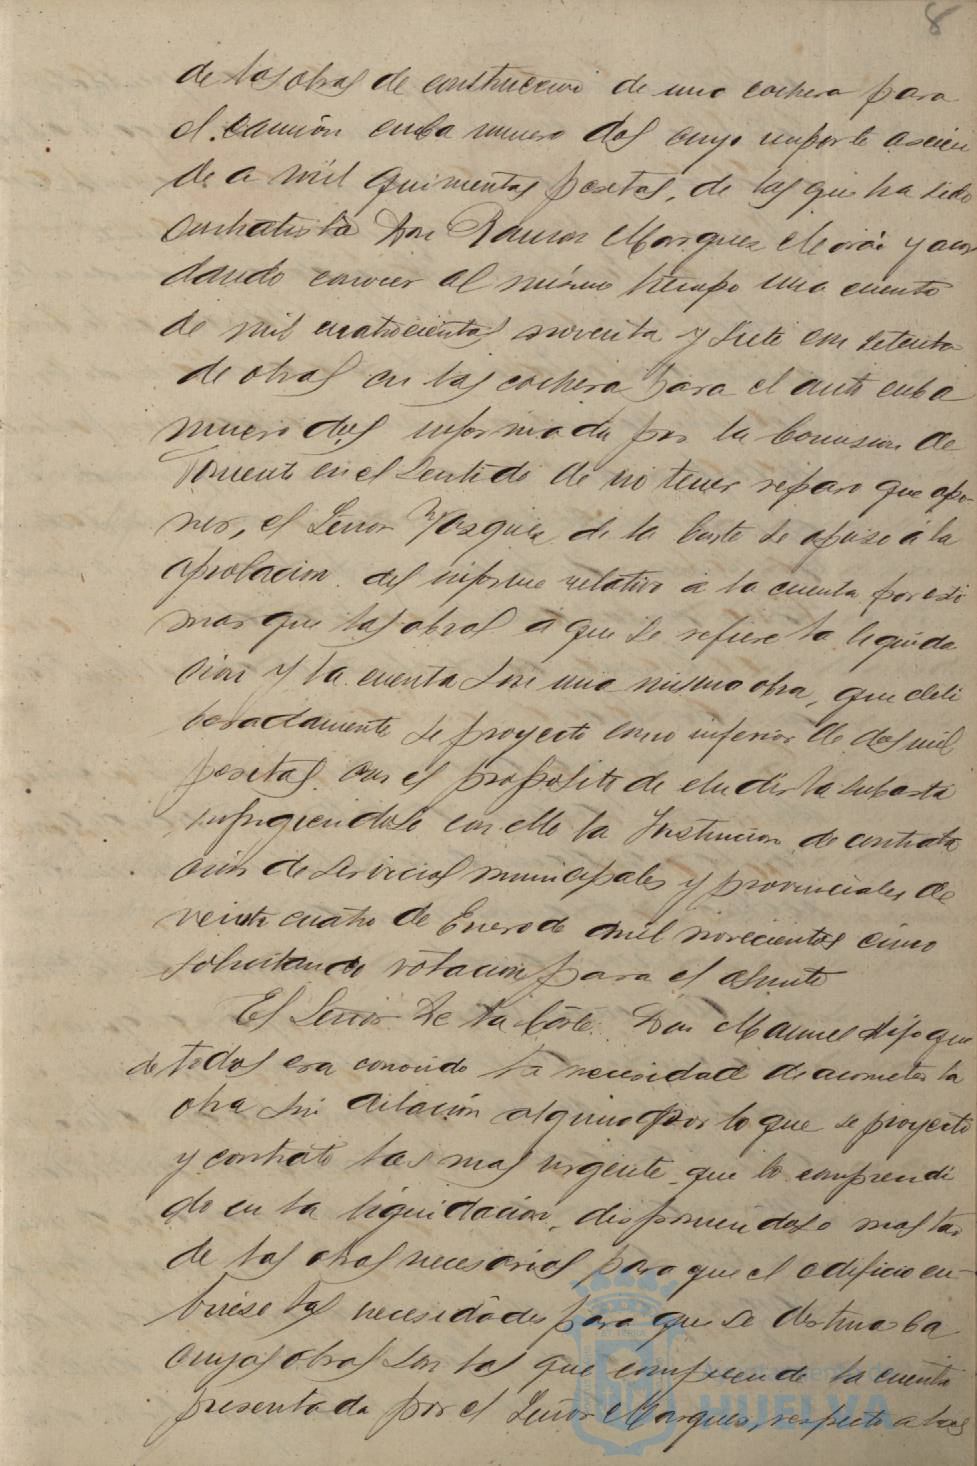 8
de las obras de construccion de una cochera para
el camión cuba numero dos cuyo importe ascien
de a mil quinientas pesetas, de las que ha sido
contratista Don Ramon Marquez Morán y acor
dando conocer al mismo tiempo una cuenta
de mil cuatrocientas noventa y siete con setenta
de obras en las cochera para el auto cuba
numero dos informada por la Comision de
Fomento en el sentido de no tener reparo que opo-
ner, el Señor Vazquez de la Corte se opuso á la
aprobacion del informe relativo á la cuenta por esti
mar que las obras á que se refiere la liquida
cion y la cuenta son una misma obra, que deli
beradamente se proyecto como inferior de dos mil
pesetas con el proposito de eludir la subasta
infrigiendose con ello la Instruccion de contrata
cion de servicios municipales y provinciales de
veinte cuatro de Enero de mil novecientos cinco
solicitando votacion para el asunto
El Señor De la Corte Don Manuel dijo que
de todos era conocido la necesidad de acometer la
obra sin dilación alguna por lo que se proyecto
y contrato las mas urgente que lo comprendi
do en la liquidacion, disponiendose mas tar
de las obras necesarias para que el edificio cu-
briese las necesidades para que se destinaba
cuyas obras son las que comprende la cuenta
presentada por el Señor Marquez, respecto a las
Ayuntamiento de
HUELVA